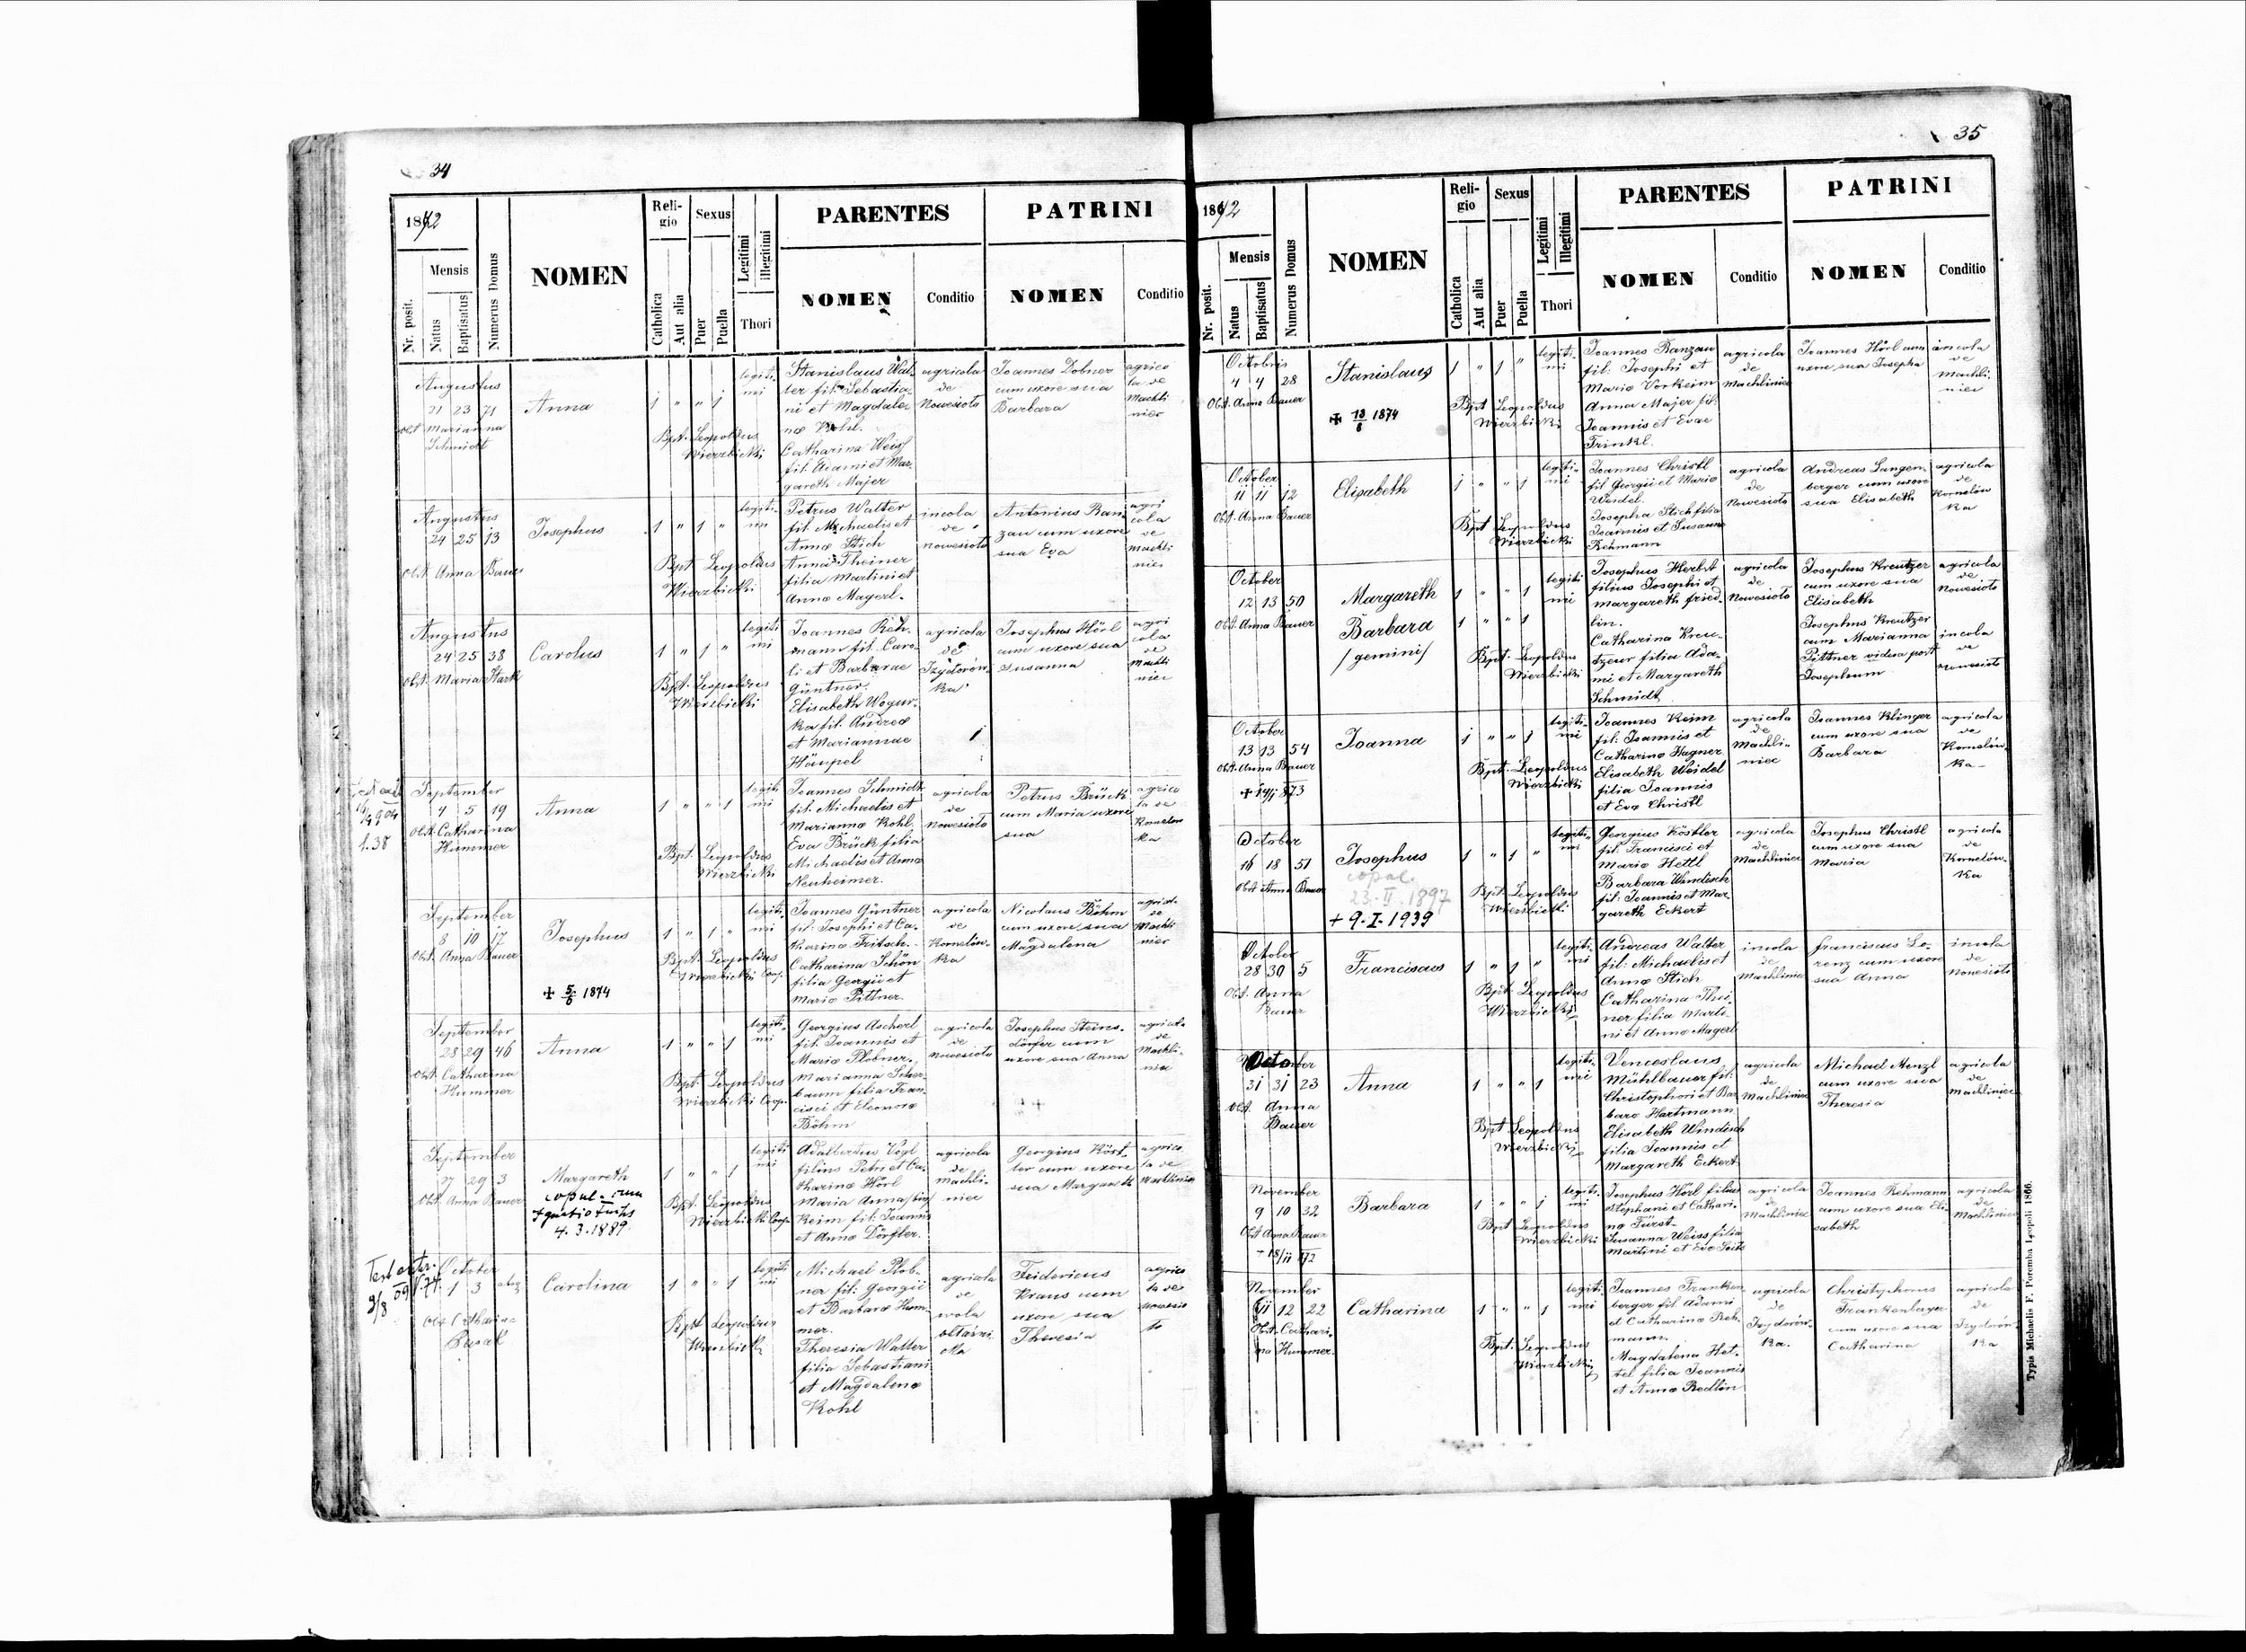 34
1872
Nr. posit.
Mensis
Natus
Baptisatus
Numerus Domus
NOMEN
Religio
Catholica
Aut alia
Sexus
Puer
Puella
Legitimi
illegitimi
Thori
PARENTES
NOMEN
Conditio
PATRINI
NOMEN
Conditio
Augustus
21 23 71
obst. Marianna
Schmidt
Anna
1 " " 1
legiti-
mi
Bpt. Leopoldus
Wierzbicki
Stanislaus Wal-
ter fil. Sebastia-
ni et Magdale-
na Kohl.
Catharina Weiss
fil. Adami et Mar-
gareth Majer
agricola
de
Nowesioło
Joannes Dobner
cum uxore sua
Barbara
agrico
la de
Machli
niec
Augustus
24 25 13
Obst. Anna Bauer
Josephus
1 " 1 "
legiti-
mi
Bpt. Leopoldus
Wierzbicki
Petrus Walter
fil. Michaelis et
Anna Stich
Anna Theiner
filia Martini et
Anna Magerl.
incola
de
Nowesioło
Antonius Ran-
zau cum uxore
sua Eva
agri
cola
de
Machli
niec
Augustus
24 25 38
Obst. Maria Stark
Carolus
1 " 1 "
legiti
mi
Bpt. Leopoldus
Wierzbicki
Joannes Reh-
mann fil. Caro-
li et Barbarae
Güntner.
Elisabeth Wogur-
ka fil. Andrea
et Mariannae
Häupel
agricola
de
Izydorów-
ka
Josephus Hörl
cum uxore sua
Susanna
agri
cola
de
Machli
niec
1.38
September
4 5 19
Obst. Catharina
Hummer
Anna
1 " " 1
legiti
mi
Bpt. Leopoldus
Wierzbicki
Joannes Schmidt
fil. Michaelis et
Marianna Kohl.
Eva Brück filia
Michaelis et Anna
Neuheimer.
agricola
de
Nowesioło
Petrus Brück
cum Maria uxore
sua
agrico
la de
Kornelow
ka
September
8 10 17
Obst. Anna Bauer
Josephus
+ 5/6 1874
1 " 1 "
legiti-
mi
Bpt. Leopoldus
Wierzbicki Coop.
Joannes Güntner
fil. Josephi et Ca-
tharina Fritsch.
Catharina Schön
filia Georgii et
Maria Pittner.
agricola
de
Kornelów-
ka
Nicolaus Böhm
cum uxore sua
Magdalena
agricol.
de
Machli
niec
September
28 29 46
Obst. Catharina
Hummer
Anna
1 " " 1
legiti-
mi
Bpt. Leopoldus
Wierzbicki Coop.
Georgius Ascherl
fil. Joannis et
Maria Plobner.
Marianna Scher-
baum filia Fran-
cisci et Eleonora
Böhm
agricola
de
Nowesioło
Josephus Steins-
dörfer cum
uxore sua Anna
agricola
de
Machli-
niec
September
27 29 3
Obst. Anna Bauer
Margareth
copul. cum
Ignatio Fuchs
4.3.1889.
1 " " 1
legiti
mi
Bpt. Leopoldus
Wierzbicki Coop.
Adalbertus Vogl
filius Petri et Ca-
tharina Hörl
Maria Anna
Keim fil. Joannis
et Anna Dörfler.
agricola
de
Machli-
niec
Georgius Köst-
ler cum uxore
sua Margareth
agrico
la de
Machliniec
October
1 3
Obst. Catharina
Carolina
1 " " 1
legiti
mi
Bpt. Leopoldus
Wierzbicki
Michael Plob-
ner fil. Georgii
et Barbara Hum-
mer.
Theresia Walter
filia Sebastiani
et Magdalena
Kohl
agricola
de
wola
Fridericus
Kraus cum
uxore sua
Theresia
agrico
la de
nowesio
ło
35
1872
Nr. posit.
Mensis
Natus
Baptisatus
Numerus Domus
NOMEN
Religio
Catholica
Aut alia
Sexus
Puer
Puella
Legitimi
Illegitimi
Thori
PARENTES
NOMEN
Conditio
PATRINI
NOMEN
Conditio
Octobris
4 4 28
Obst. Anna Bauer
Stanislaus
+ 13/6 1874
1 " 1 "
legiti-
mi
Bpt Leopoldus
Wierzbicki
Joannes Ranzau
fil. Josephi et
Maria Vorkeim
Anna Majer fil.
Joannis et Evae
Trinkl.
agricola
de
Machliniec
Joannes Hörl cum
uxore sua Josepha
incola
de
Machli-
niec
October
11 11 12
Obst. Anna Bauer
Elisabeth
1 " " 1
legiti-
mi
Bpt Leopoldus
Wierzbicki
Joannes Christl
fil Georgii et Maria
Weidel.
Josepha Stich filia
Joannis et Susanna
Rehmann
agricola
de
Nowesioło
Andreas Langen-
berger cum uxore
sua Elisabeth
agricola
de
Kornelów
ka
October
12 13 50
Obst. Anna Bauer
Margareth
Barbara
/gemini/
1 " " 1
1 " " 1
legiti
mi
Bpt. Leopoldus
Wierzbicki
Josephus Herbst
filius Josephi et
Margareth Fried-
lin.
Catharina Kreu-
tzeur filia Ada-
mi et Margareth
Schmidt
agricola
de
Nowesioło
Josephus Kreutzer
cum uxore sua
Elisabeth
Josephus Kreutzer
cum Marianna
Pittner vidua post
Josephum
agricola
de
Nowesioło
incola
de
Nowesioło
October
13 13 54
Obst. Anna Bauer
Joanna
1 " " 1
legiti-
mi
Bpt. Leopoldus
Wierzbicki
Joannes Keim
fil: Joannis et
Catharina Hagner
Elisabeth Weidel
filia Joannis
et Eva Christl
agricola
de
Machli-
niec
Joannes Klinger
cum uxore sua
Barbara
agricola
de
Kornelów-
ka-
October
16 18 51
Obst Anna Bauer
Josephus
copul.
23.II.1897
+ 9.I.1939
1 " 1 "
legiti-
mi
Bpt. Leopoldus
Wierzbicki
Georgius Köstler
fil. Francisci et
Maria Hettl
Barbara Windisch
fil. Joannis et Mar-
gareth Eckert
agricola
de
Machliniec
Josephus Christl
cum uxore sua
Maria
agricola
de
Kornelów-
ka
October
28 30 5
Obst. Anna
Bauer
Franciscus
1 " 1 "
legiti-
mi
Bpt. Leopoldus
Wierzbicki
Andreas Walter
fil: Michaelis et
Anna Stich
Catharina Thei-
ner filia Marti-
ni et Anna Magerl
incola
de
Machliniec
Franciscus Lo-
renz cum uxore
sua Anna
incola
de
Nowesioło
October
31 31 23
Obst. Anna
Bauer
Anna
1 " " 1
legiti-
mi
Bpt Leopoldus
Wierzbicki
Venceslaus
Mühlbauer fil:
Christophori et Bar
bara Hartmann
Elisabeth Windisch
filia Joannis et
Margareth Eckert
agricola
de
Machliniec
Michael Menzl
cum uxore sua
Theresia
agricola
de
Machliniec
November
9 10 32
Obst. Anna Bauer
+ 18/11 872
Barbara
1 " " 1
legiti-
mi
Bpt Leopoldus
Wierzbicki
Josephus Hörl filius
Stephani et Cathari-
na Fürst.
Susanna Weiss filia
Martini et Eva Seitz
agricola
de
Machliniec
Joannes Rehmann
cum uxore sua Eli-
sabeth
agricola
de
Machliniec
November
11 12 22
Obst. Cathari-
na Hummer.
Catharina
1 " " 1
legiti-
mi
Bpt. Leopoldus
Wierzbicki
Joannes Franken
berger fil. Adami
et Catharina Reh-
mann.
Magdalena Het-
tel filia Joannis
et Anna Redlin
agricola
de
Izydorów-
ka.
Christophorus
Frankenberger
cum uxore sua
Catharina
agricola
de
Izydorów
ka
Typis Michaelis F. Poremba Leopoli 1866.